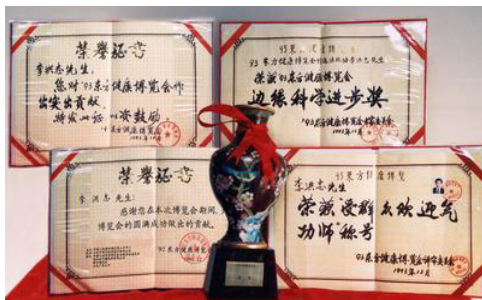 荣誉证书
李洪志先生:
您对'93东方健康博览会作
出突出贡献,
特发此证 以资鼓励
'93东方健康博览会
1993年12月
'93东方健康博览会
李洪志先生
荣获'93东方健康博览会
边缘科学进步奖
'93东方健康博览会评审委员会
1993年12月
荣誉证书
李洪志先生:
感谢您在本次博览会期间,
博览会的圆满成功做出的贡献。
'93东方健康博览会
'93东方健康博览
李洪志先生
荣获"受群众欢迎气
功师"称号
'93东方健康博览会评审委员会
1993年12月